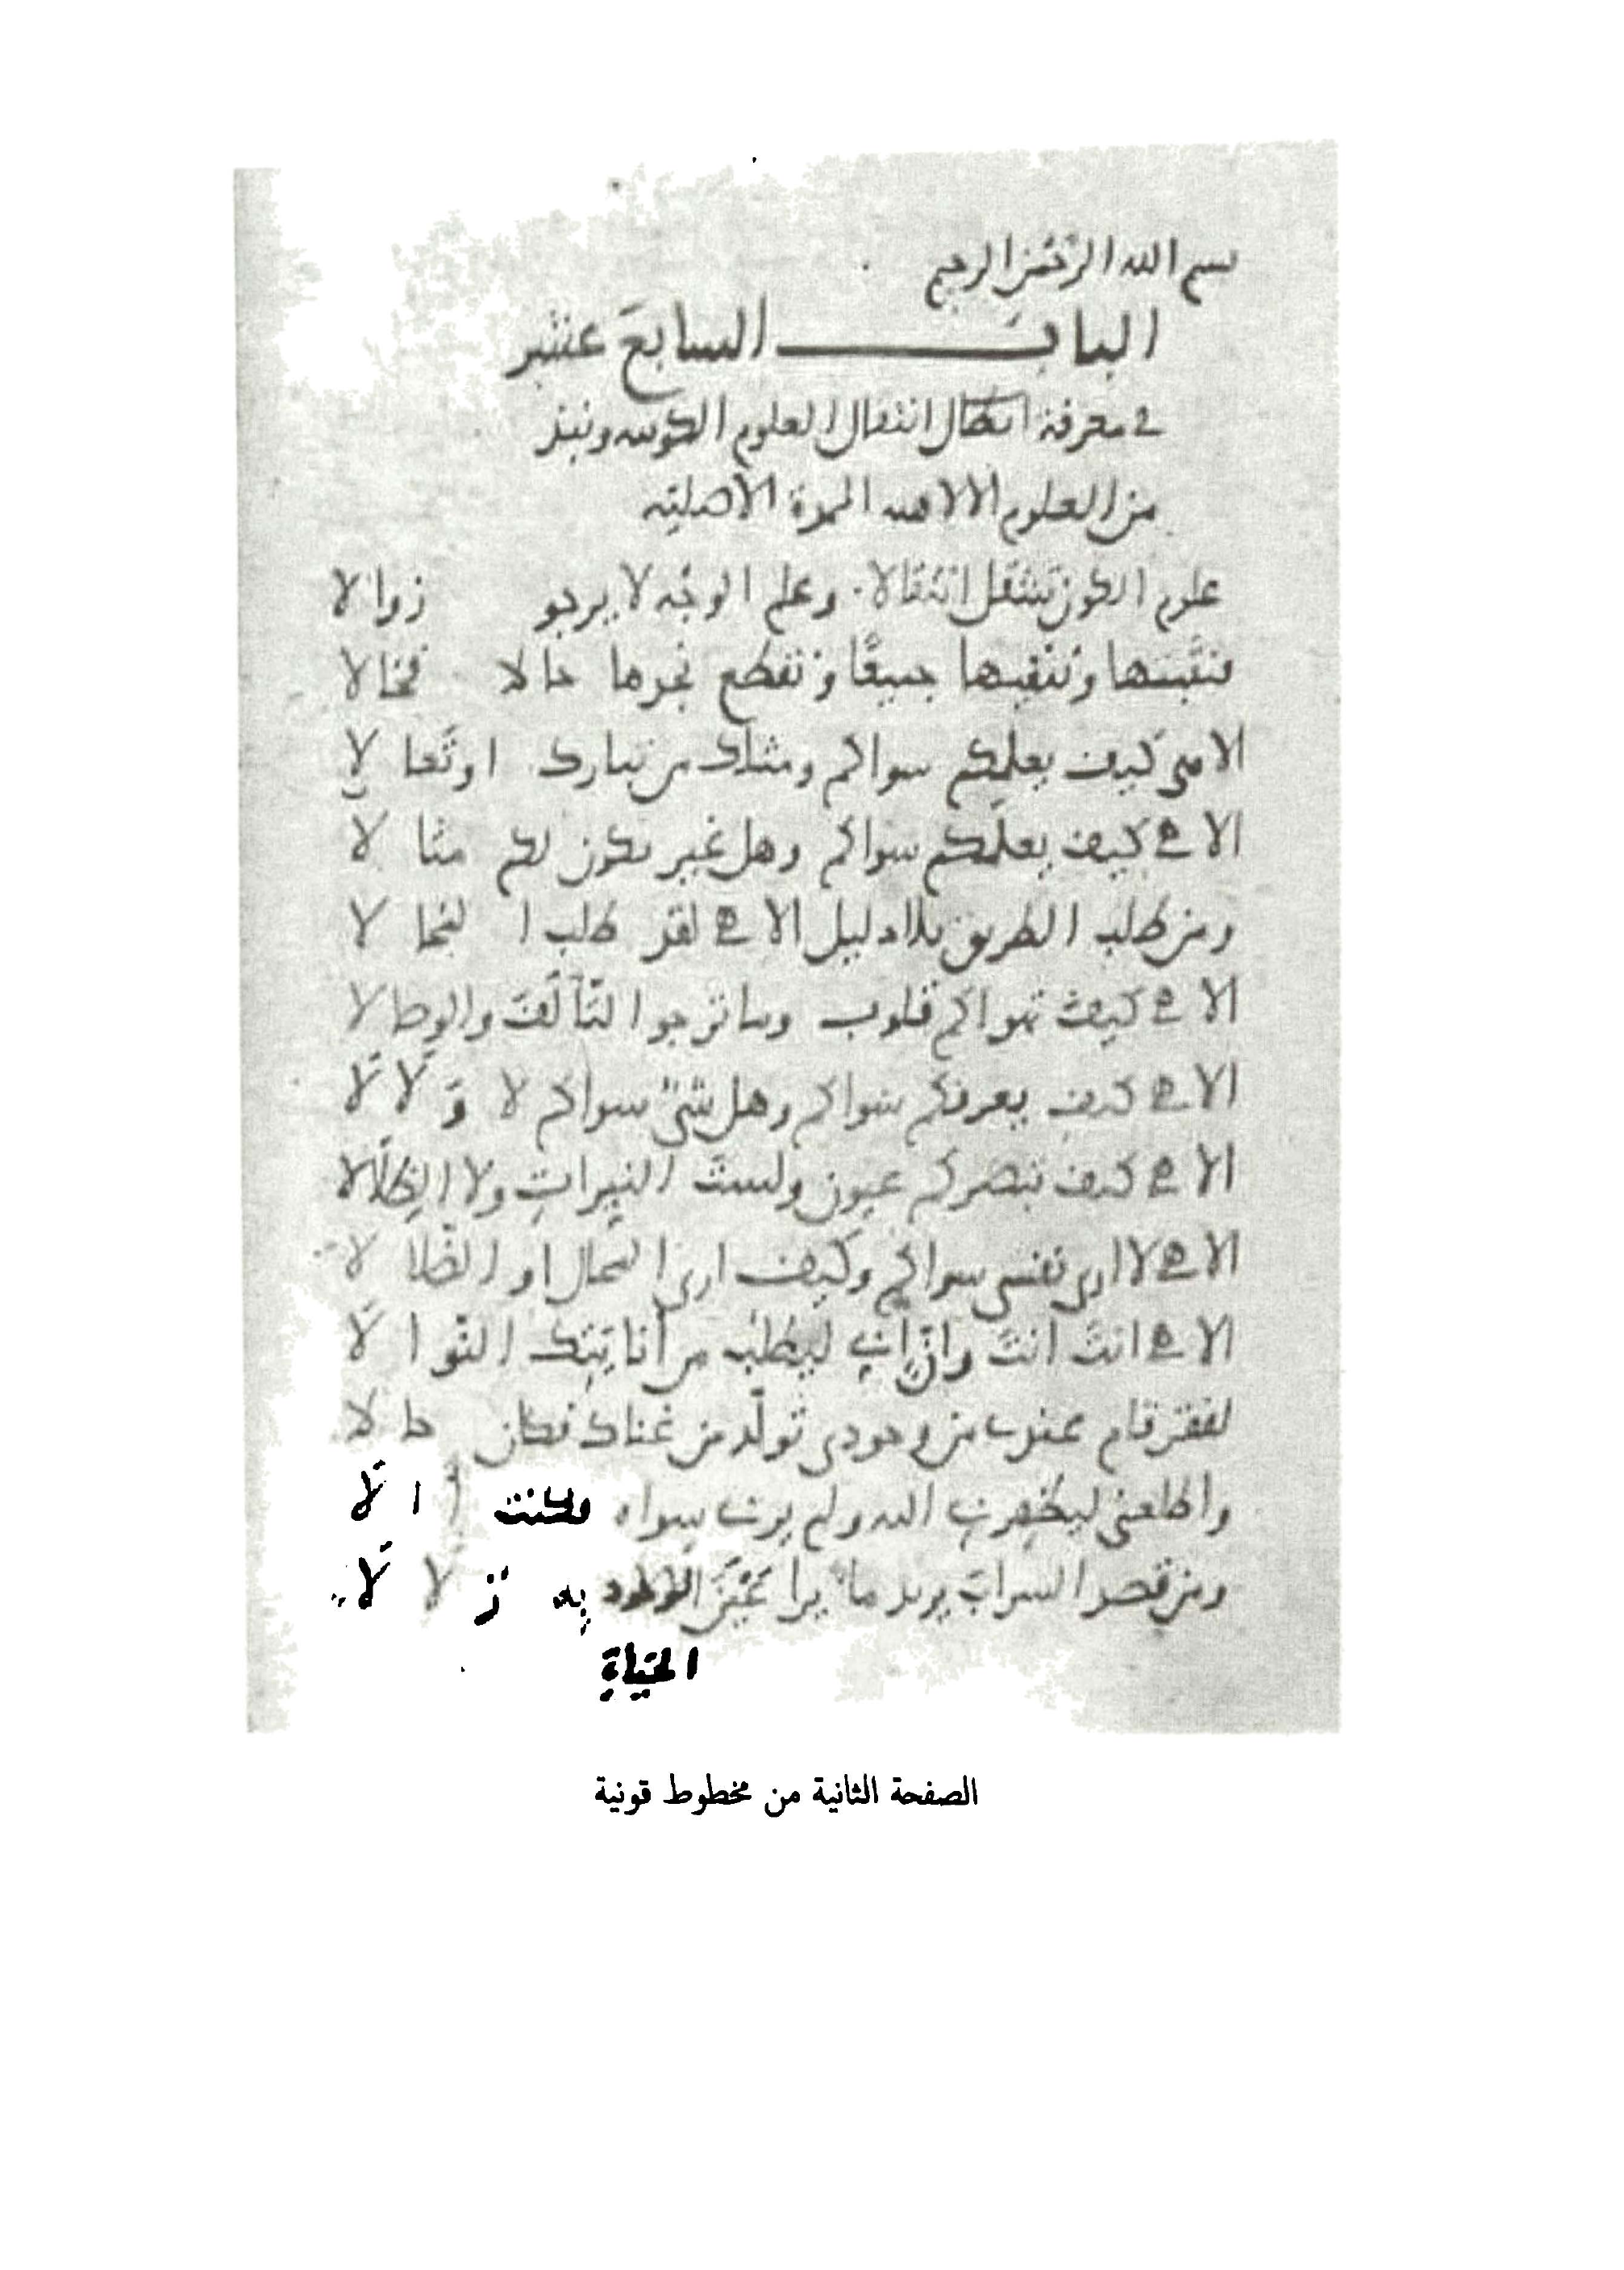 بسم الله الرحمن الرحيم
الباب السابع عشر
في معرفة انتقال العلوم الكونيه ونبذ
من العلوم الالاهيه الممدة الاصليّه
علوم الكون تنتقل انتقالا وعلم الوجه لا يرجو زوالا
فنثبتها وننفيها جميعًا ونقطع نجدها حالا فحالا
الاهي كيف يعلمكم سواكم ومثلك من تبارك او تعالا
الاهي كيف يعلمكم سواكم وهل غير يكون لكم مثالا
ومن طلب الطريق بلا دليل الاهي لقد طلب المحالا
الاهي كيف تهواكم قلوب وما ترجوا التآلف والوصالا
الاهي كيف يعرفكم سواكم وهل شيء سواكم لا ولا لا
الاهي كيف تبصركم عيون ولست النيرات ولا الظلالا
الاهي لا ارى نفسي سواكم وكيف ارى المحال او الضلالا
الاهي انت انت وان اني ليطلب من أنايتك النوالا
لفقر قام عندي من وجودي تولّد من غناك فكان حالا
واطلعني ليظهرني اليه ولم يرني سواه فكنت الا
ومن قصد السراب يريد ماء يرا عين الحياة به زلالا
الحياة
الصفحة الثانية من مخطوط قونية